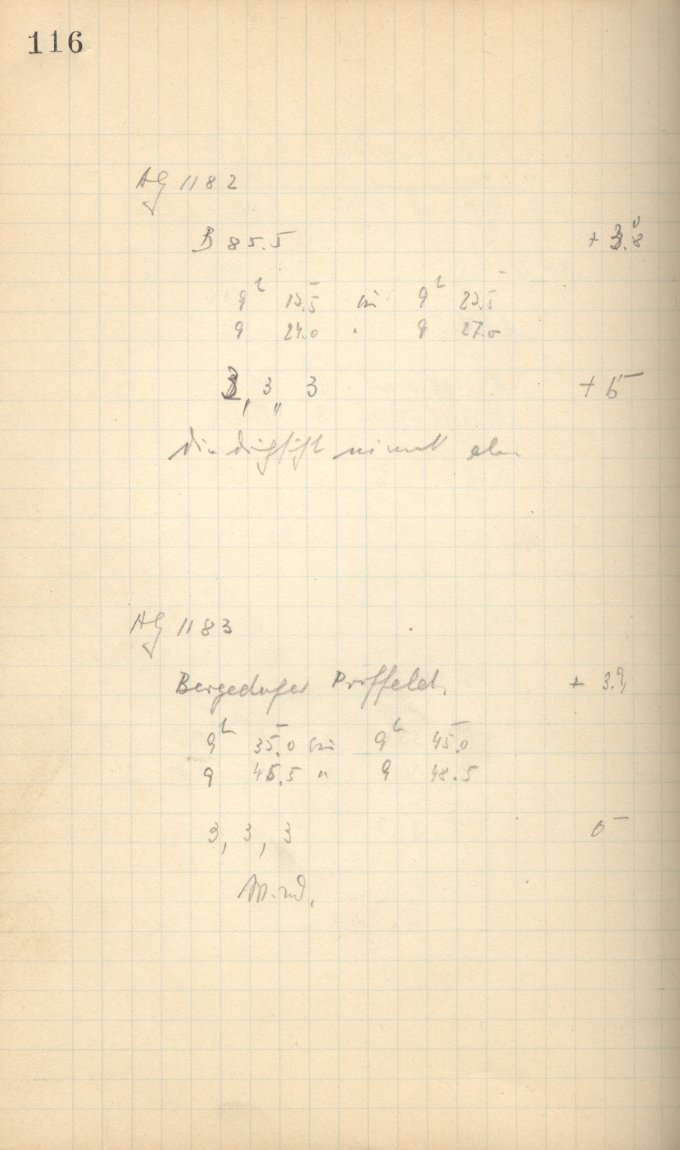 116
AG 1182
B 85.5 + 3.8
9h 13.5 bis 9h 23.5
9 24.0 " 9 27.0
3, 3, 3 + 5
die Durchsicht nimmt ab
AG 1183
Bergedorfer Prüffeld. + 3.9
9h 35.0 bis 9h 45.0
9 45.5 " 9 48.5
3, 3, 3 0
Wind.